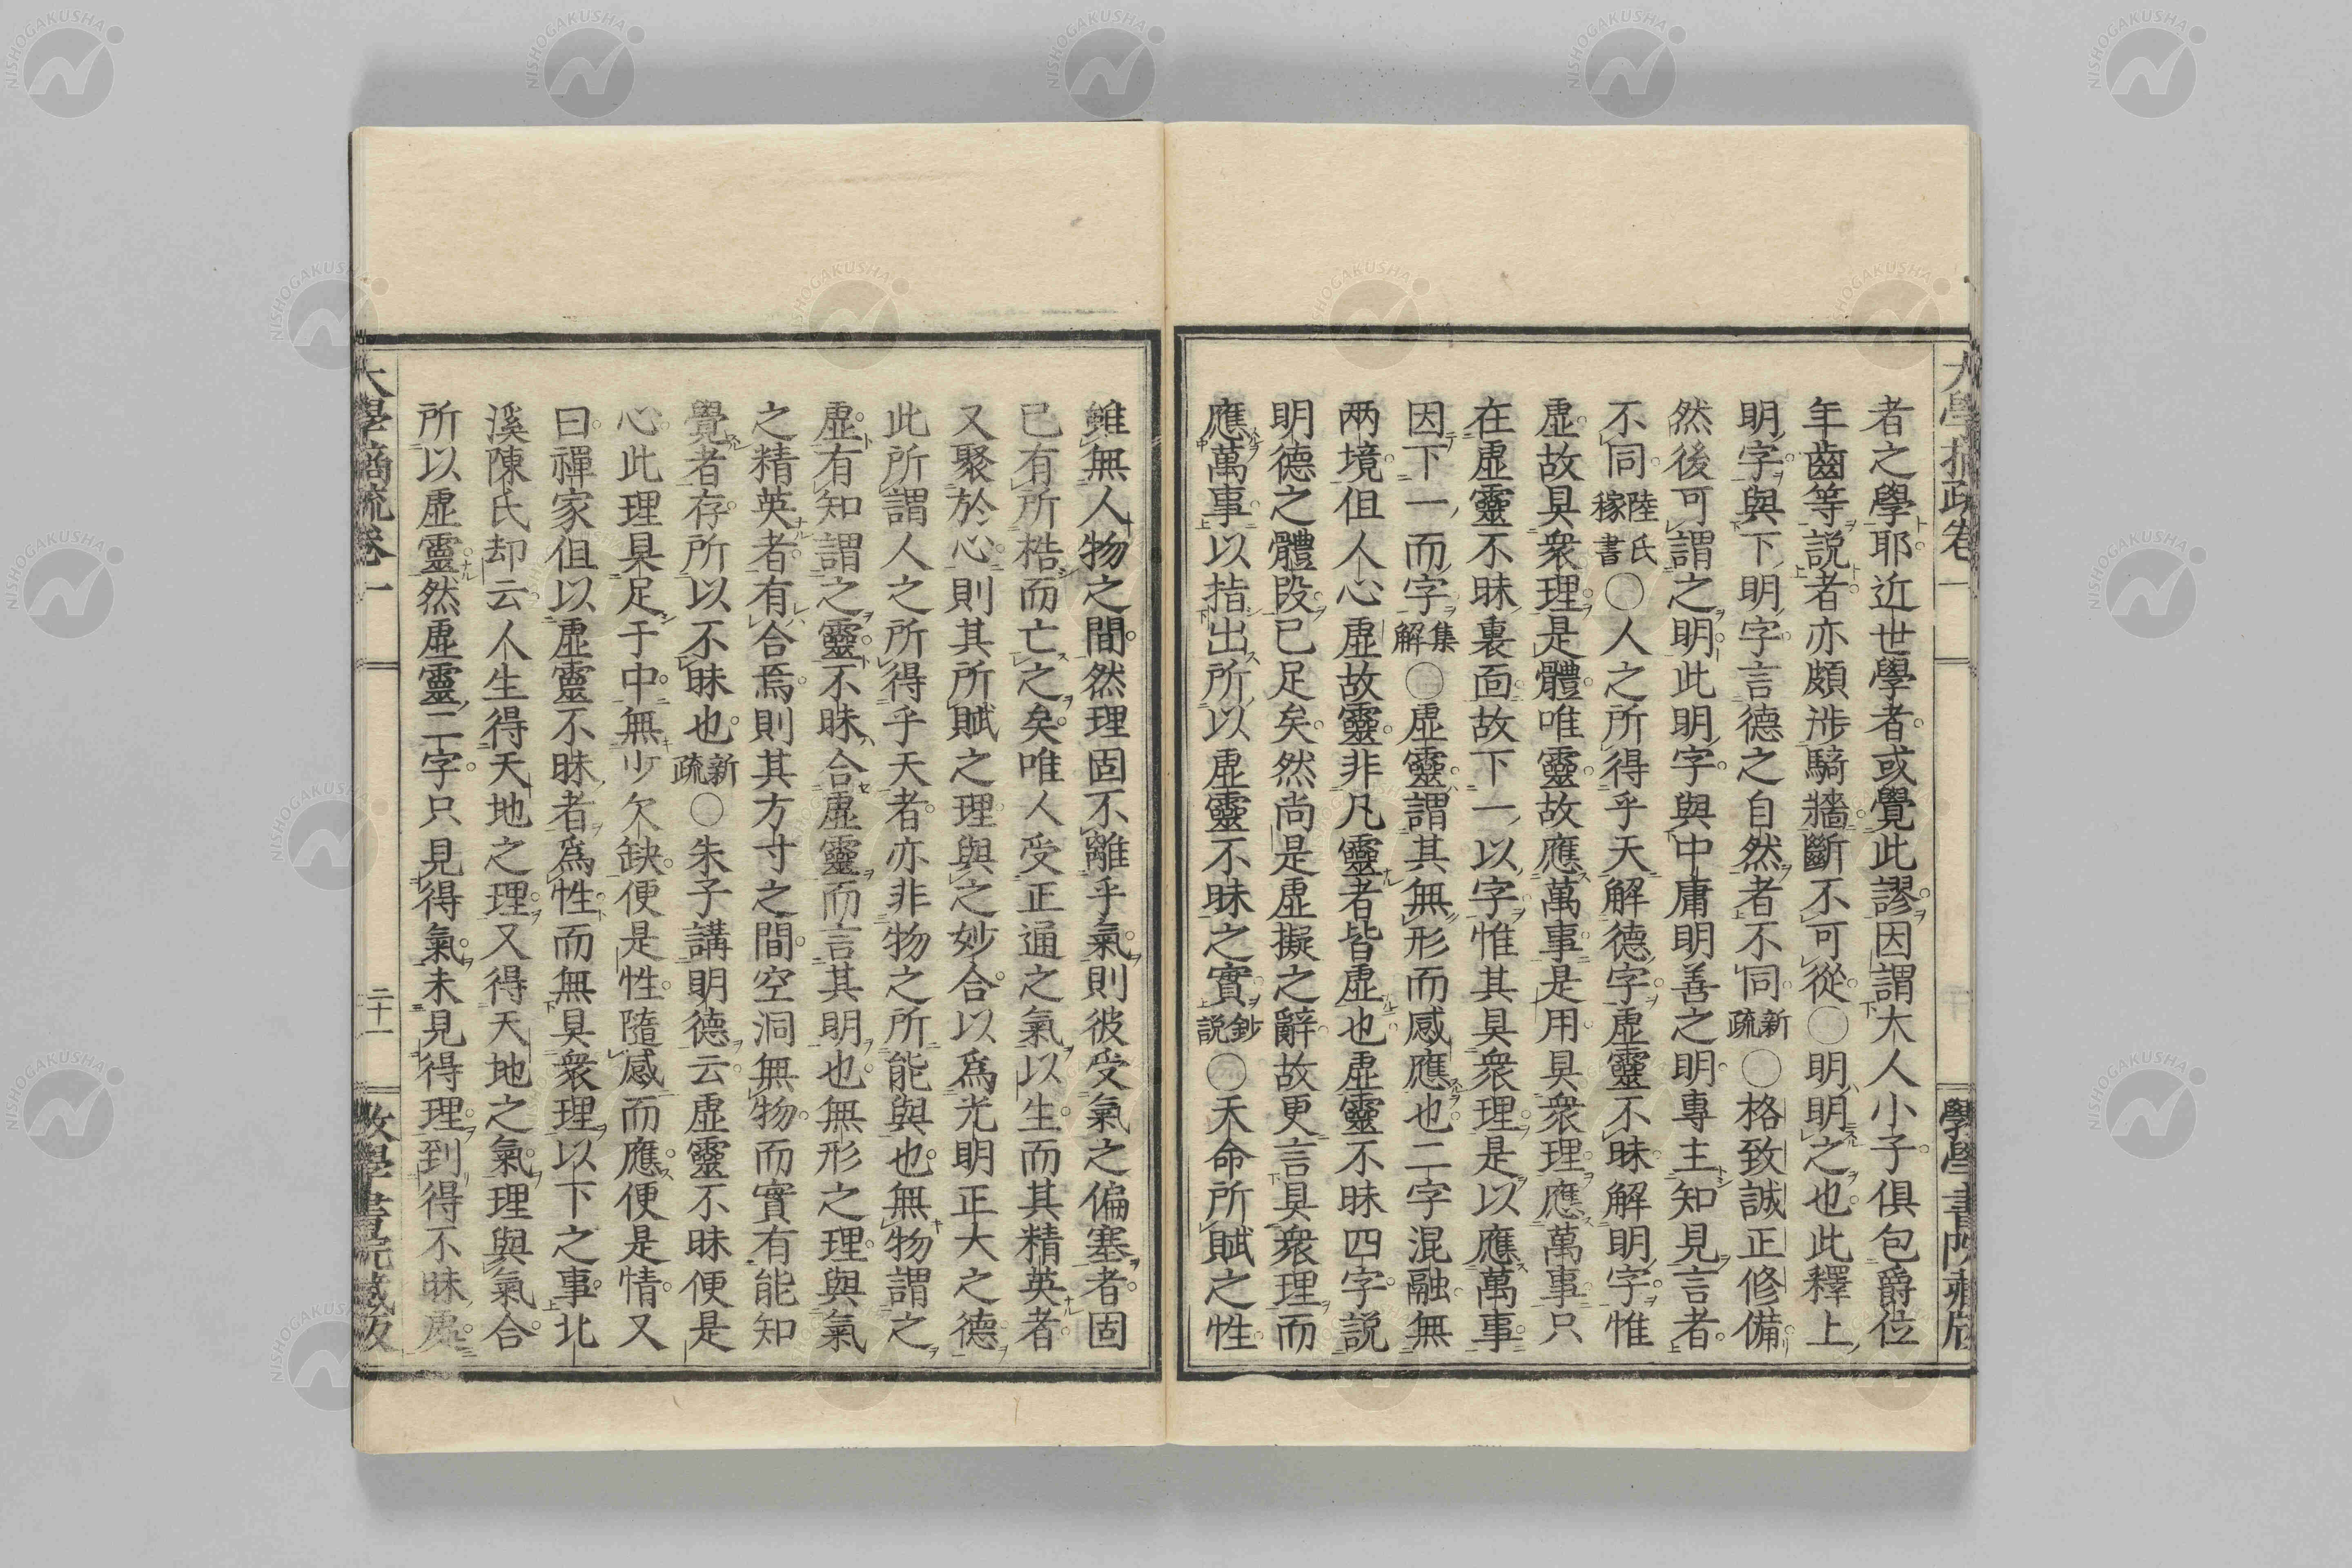 者之學耶近世學者或覺此謬因謂大人小子俱包爵位
年齒等説者亦頗涉騎牆斷不可從〇明明之也此釋上
明字與下明字言德之自然者不同新疏〇格致誠正修備
然後可謂之明此明字與中庸明善之明專主知見言者
不同陸氏稼書〇人之所得乎天解德字虛靈不昧解明字惟
虛故具衆理是體唯靈故應萬事是用具衆理應萬事只
在虛靈不昧裏面故下一以字惟其具衆理是以應萬事
因下一而字集解〇虛靈謂其無形而感應也二字混融無
兩境但人心虛故靈非凡靈者皆虛也虛靈不昧四字説
明德之體段已足矣然尚是虛擬之辭故更言具衆理而
應萬事以指出所以虛靈不昧之實鈔説〇天命所賦之性
雖無人物之間然理固不離乎氣則彼受氣之偏塞者固
已有所梏而亡之矣唯人受正通之氣以生而其精英者
又聚於心則其所賦之理與之妙合以爲光明正大之德
此所謂人之所得乎天者亦非物之所能與也無物謂之
虛有知謂之靈不昧合虛靈而言其明也無形之理與氣
之精英者有合焉則其方寸之間空洞無物而實有能知
覺者存所以不昧也新疏〇朱子講明德云虛靈不昧便是
心此理具足于中無少欠缺便是性隨感而應便是情又
曰禪家但以虛靈不昧者爲性而無具衆理以下之事北
溪陳氏却云人生得天地之理又得天地之氣理與氣合
所以虛靈然虛靈二字只見得氣未見得理到得不昧處
大學摘疏卷一
二十一